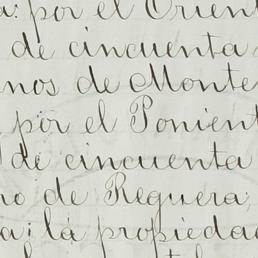 a: por el Orien
de cincuenta
nos de Monte
por el Ponient
de cincuenta
no de Reguera,
a: la propieda